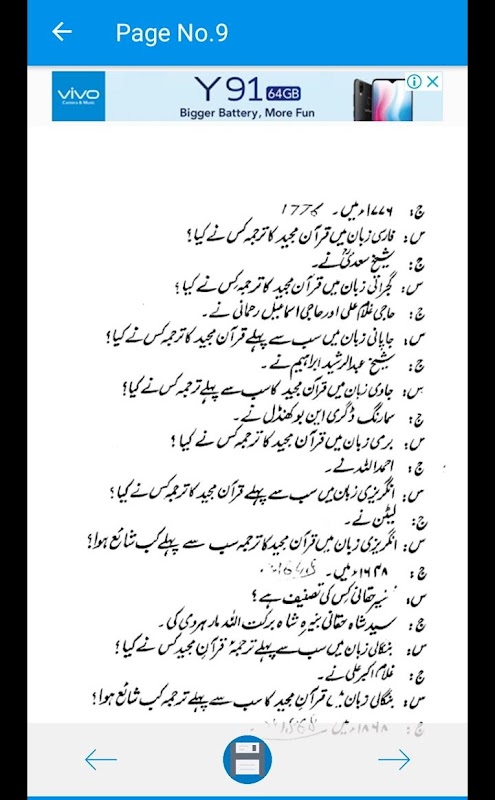 Page No.9
vivo
Camera & Music
Y91 64GB
Bigger Battery, More Fun
ج: ۱۷۷۶ء میں۔ 1776
س: فارسی زبان میں قرآن مجید کا ترجمہ کس نے کیا؟
ج: شیخ سعدیؒ نے۔
س: گجراتی زبان میں قرآن مجید کا ترجمہ کس نے کیا؟
ج: حاجی غلام علی اور حاجی اسماعیل رحمانی نے۔
س: جاپانی زبان میں سب سے پہلے قرآن مجید کا ترجمہ کس نے کیا؟
ج: شیخ عبدالرشید ابراہیم نے۔
س: جاوی زبان میں قرآن مجید کا سب سے پہلے ترجمہ کس نے کیا؟
ج: سمارنگ ڈگری این بو کھنڈل نے۔
س: بربری زبان میں قرآن مجید کا ترجمہ کس نے کیا؟
ج: احمد اللہ نے۔
س: انگریزی زبان میں سب سے پہلے قرآن مجید کا ترجمہ کس نے کیا؟
ج: لیٹن نے۔
س: انگریزی زبان میں قرآن مجید کا ترجمہ سب سے پہلے کب شائع ہوا؟
ج: ۱۶۴۸ء میں۔ 1648
س: تفسیر حقانی کس کی تصنیف ہے؟
ج: سید شاہ حقانی بنیرہ شاہ برکت اللہ مارہروی کی۔
س: بنگالی زبان میں سب سے پہلے ترجمۂ قرآن مجید کس نے کیا؟
ج: غلام اکبر علی نے۔
س: بنگالی زبان میں قرآن مجید کا سب سے پہلے ترجمہ کب شائع ہوا؟
ج: ۱۸۶۸ء میں۔ 1868